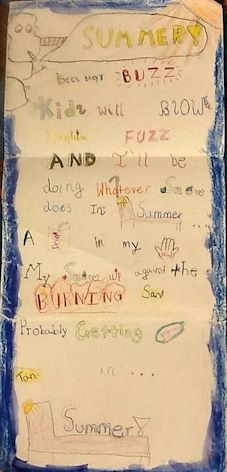 SUMMER!
Bees may BUZZ
Kids will BLOW
FUZZ
AND I'll be
doing Whatever Snow
does In Summer ....
A in my
My Snow up against the
BURNING San
Probably Getting
Tan in ...
Summer!